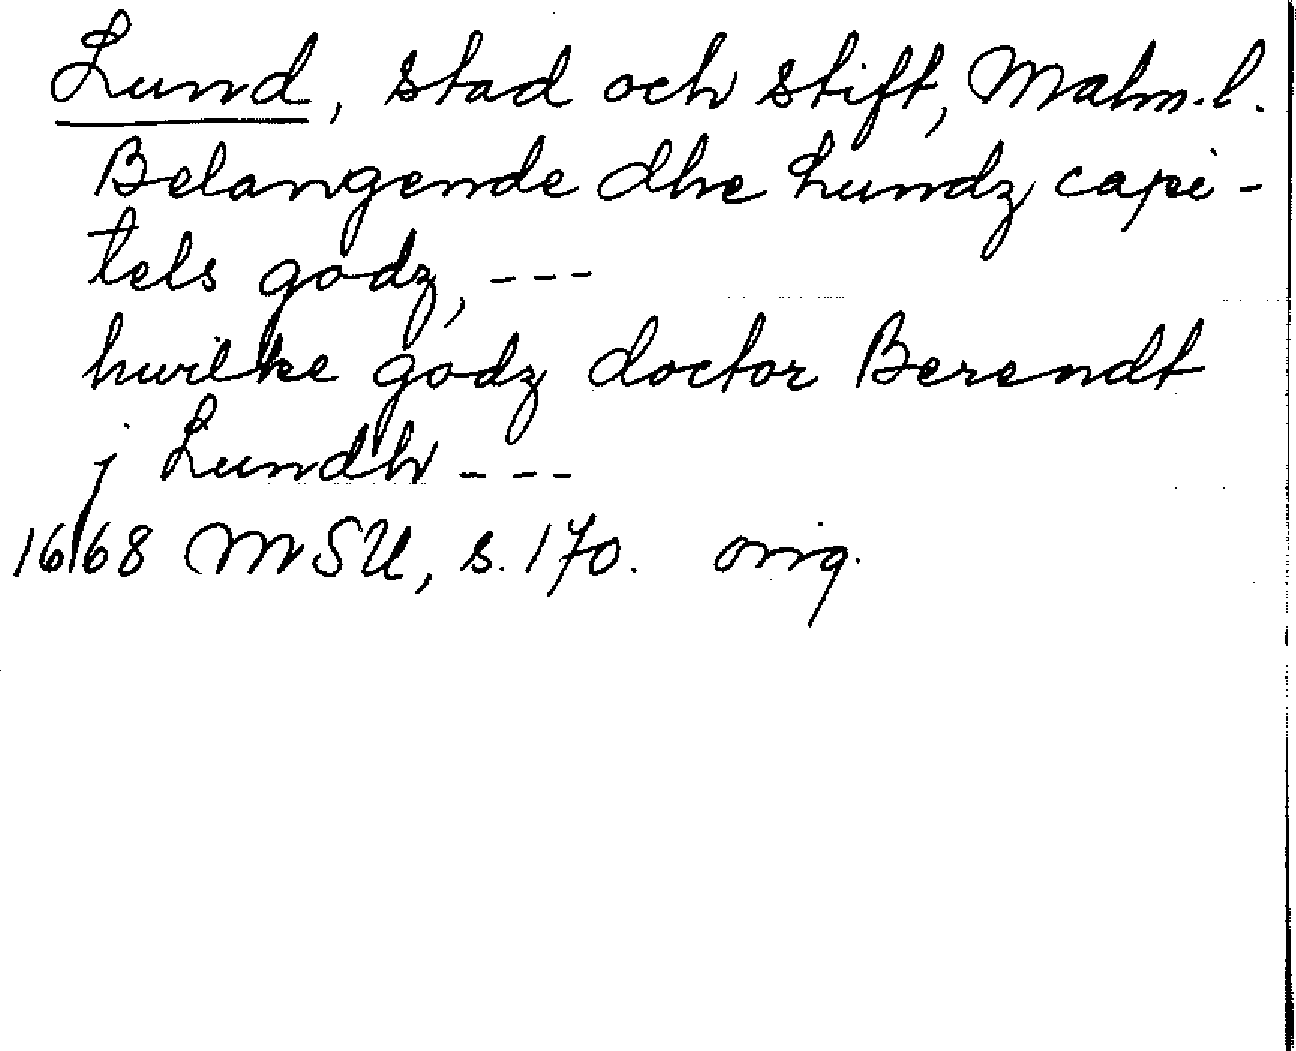 Lund, stad och stift, Malm.l.
Belangende dhe Lundz capi-
tels godz, ---
hwilke godz doctor Berendt
j Lundh ---
1668 MSU, s. 170. orig.